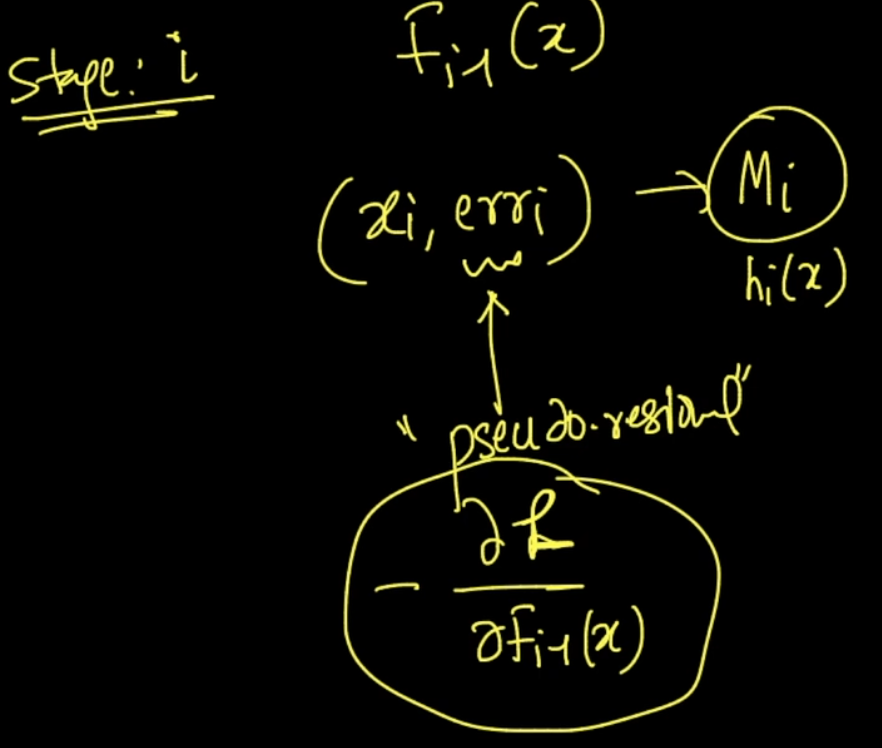 Stage: i
F_{i-1}(x)
(x_i, err_i) → M_i
h_i(x)
"pseudo-residual"
- ∂L / ∂F_{i-1}(x)